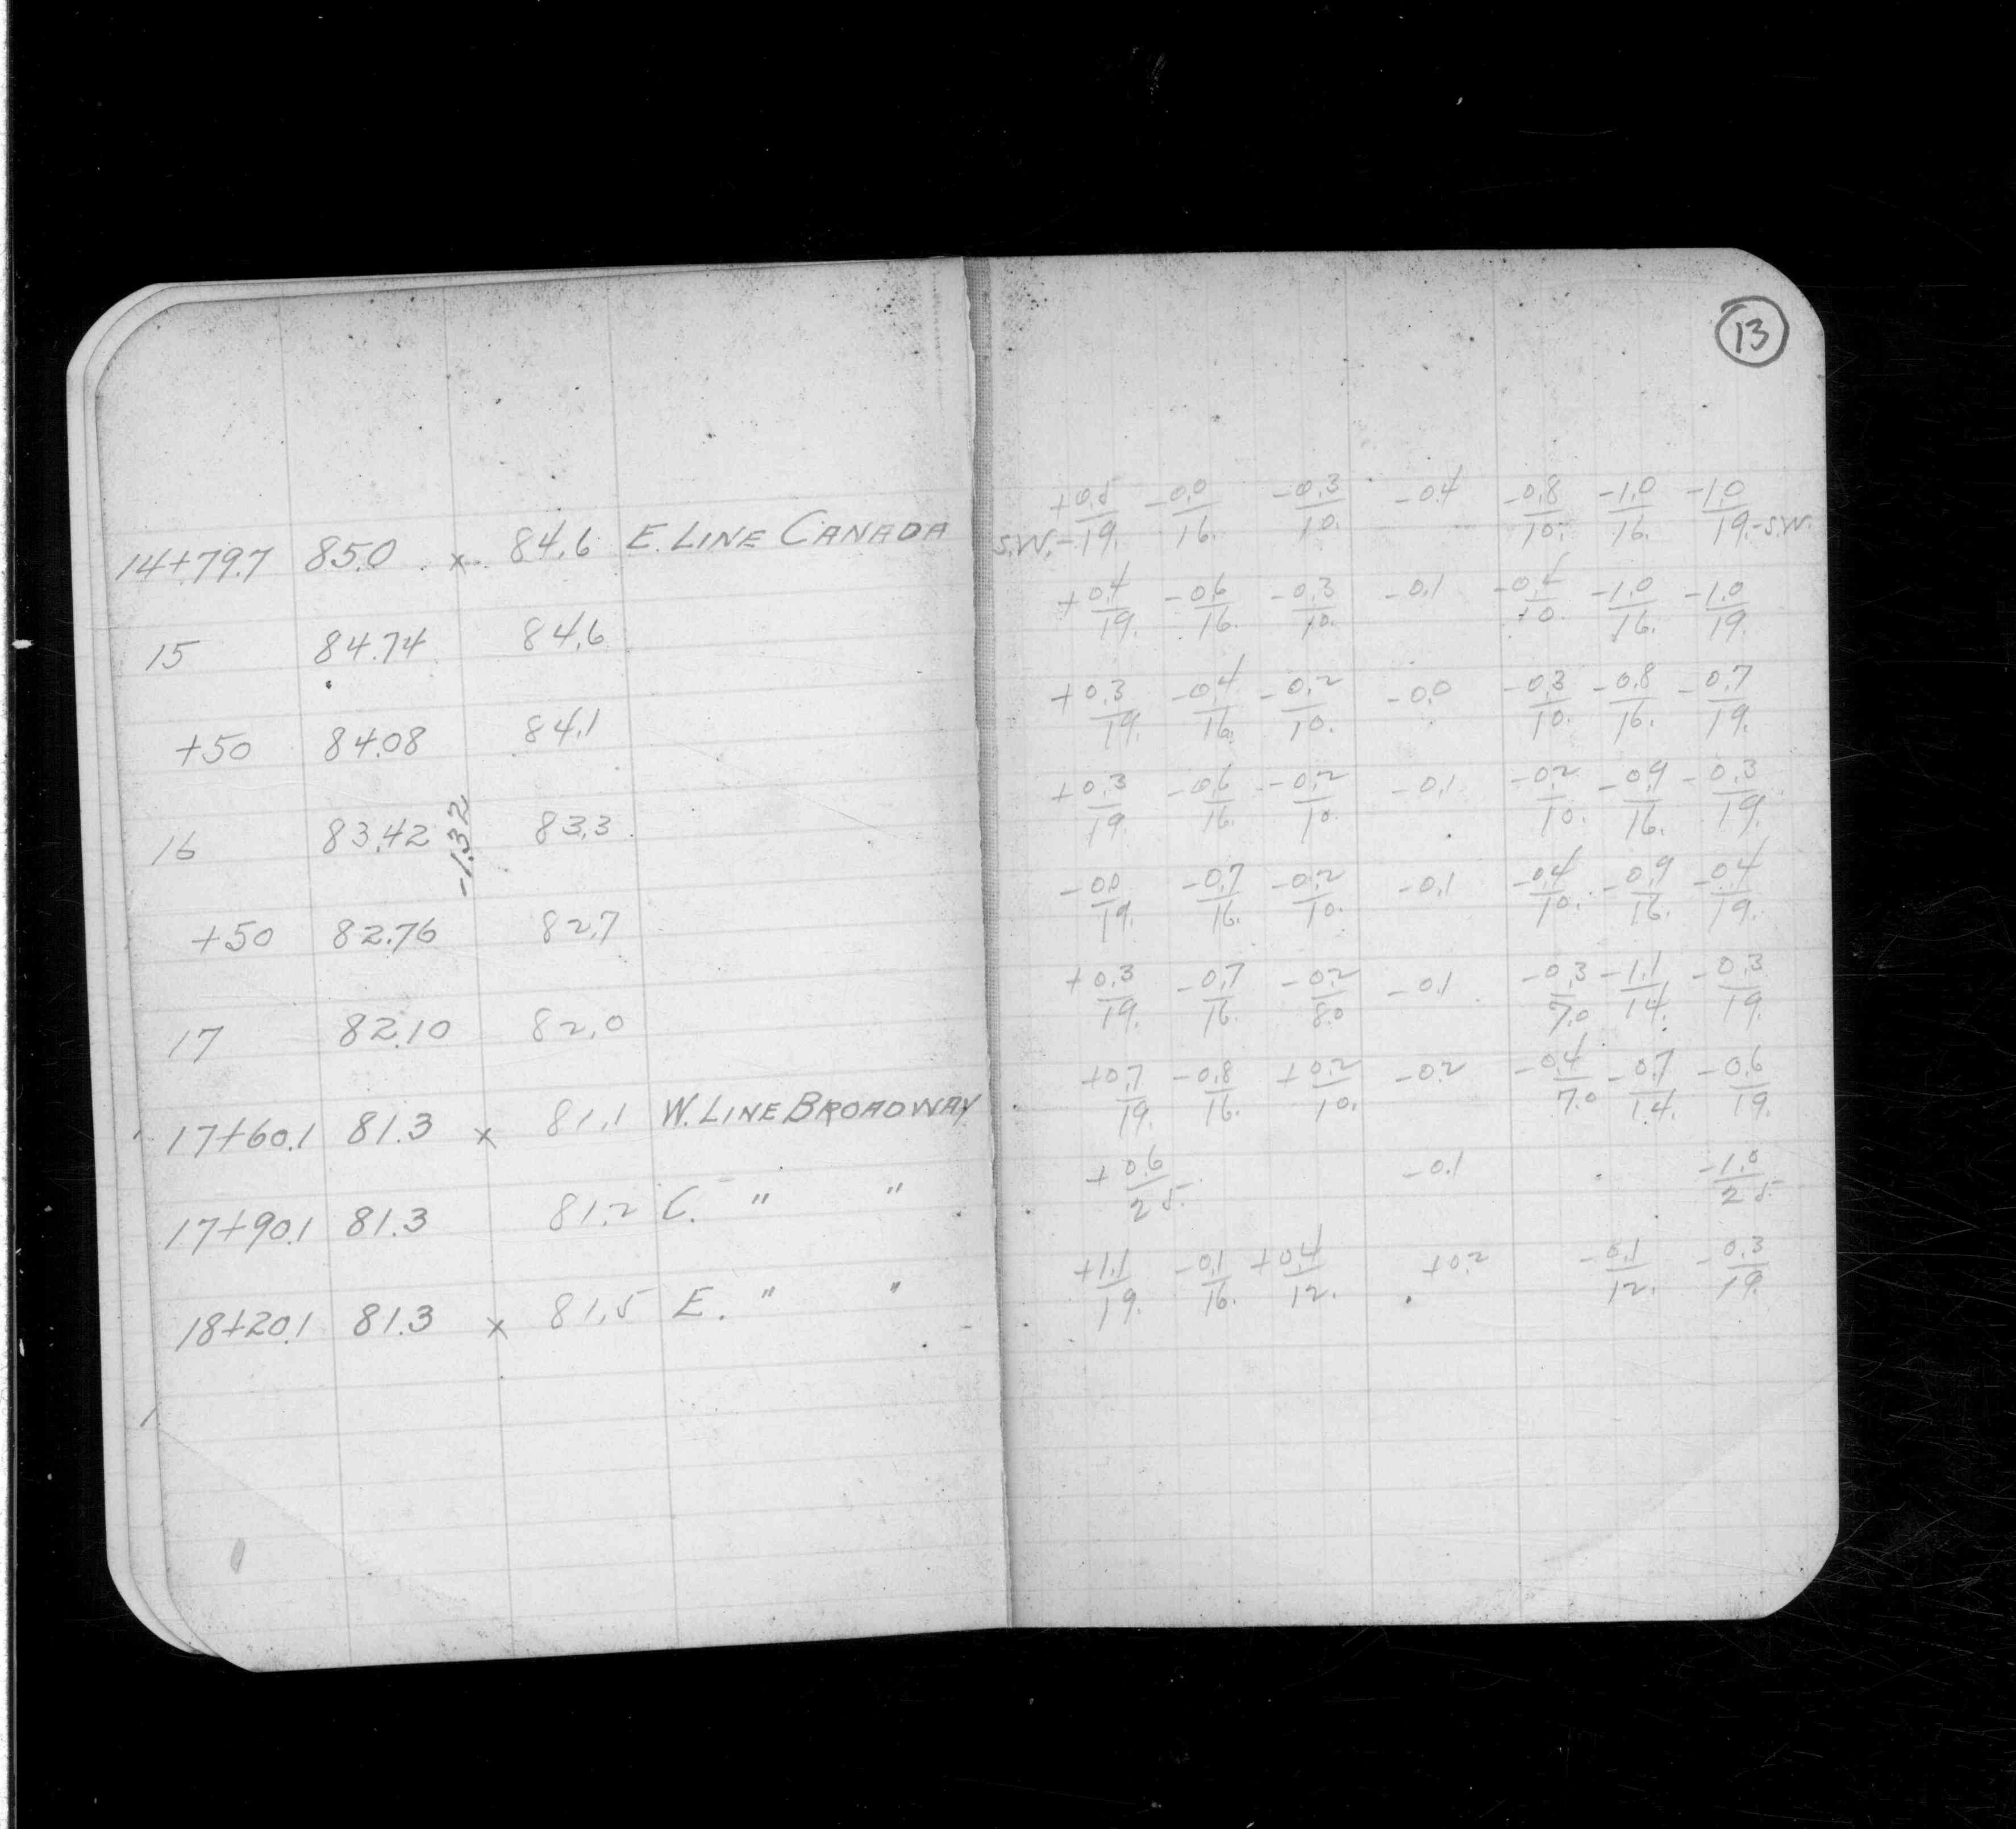 13
14+79.7 85.0 x 84.6 E. LINE CANADA
15 84.74 84.6
+50 84.08 84.1
16 83.42 83.3
-1.32
+50 82.76 82.7
17 82.10 82.0
17+60.1 81.3 x 81.1 W. LINE BROADWAY
17+90.1 81.3 81.2 C. " "
18+20.1 81.3 x 81.5 E. " "
+0.5 -0.0 -0.3 -0.4 -0.8 -1.0 -1.0
S.W.-19. 16. 10. 10. 16. 19.-S.W.
+0.4 -0.6 -0.3 -0.1 -0.4 -1.0 -1.0
19. 16. 10. 10. 16. 19.
+0.3 -0.4 -0.2 -0.0 -0.3 -0.8 -0.7
19. 16. 10. 10. 16. 19.
+0.3 -0.6 -0.2 -0.1 -0.2 -0.9 -0.3
19. 16. 10. 10. 16. 19.
-0.0 -0.7 -0.2 -0.1 -0.4 -0.9 -0.4
19. 16. 10. 10. 16. 19.
+0.3 -0.7 -0.2 -0.1 -0.3 -1.1 -0.3
19. 16. 8.0 7.0 14. 19.
+0.7 -0.8 +0.2 -0.2 -0.4 -0.7 -0.6
19. 16. 10. 7.0 14. 19.
+0.6 -0.1 -1.0
25. 25.
+1.1 -0.1 +0.4 +0.2 -0.1 -0.3
19. 16. 12. 12. 19.